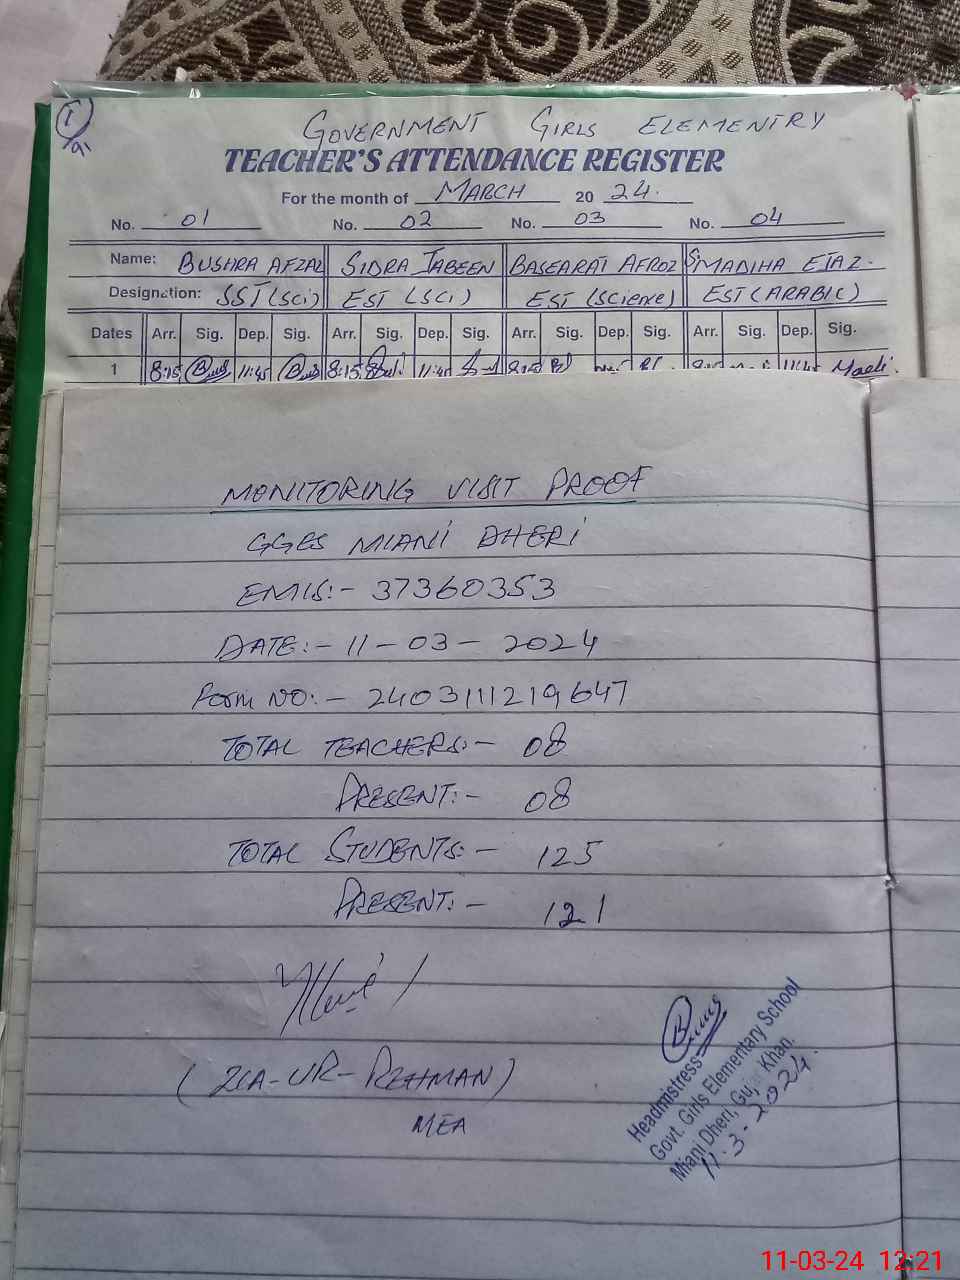 1/91
GOVERNMENT GIRLS ELEMENTRY
TEACHER'S ATTENDANCE REGISTER
For the month of MARCH 20 24.
No. 01 No. 02 No. 03 No. 04
Name: BUSHRA AFZAL SIDRA JABEEN BASEARAT AFROZ MADIHA EJAZ.
Designation: SST (SCi) EST (SCi) EST (Science) EST (ARABIC)
Dates Arr. Sig. Dep. Sig. Arr. Sig. Dep. Sig. Arr. Sig. Dep. Sig. Arr. Sig. Dep. Sig.
1 8:15 11:45 8:15 11:45 8:15 8:15 11:45
MONITORING VISIT PROOF
GGES MIANI DHERI
EMIS:- 37360353
DATE:- 11-03-2024
Form NO:- 2403111219647
TOTAL TEACHERS:- 08
PRESENT:- 08
TOTAL STUDENTS:- 125
PRESENT:- 121
(ZIA-UR-REHMAN)
MEA
Headmistress
Govt. Girls Elementary School
Miani Dheri, Gujar Khan.
11-3-2024.
11-03-24 12:21